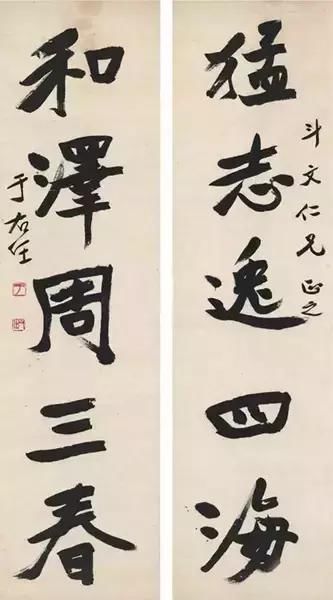 猛志逸四海
斗文仁兄正之
和澤周三春
于右任